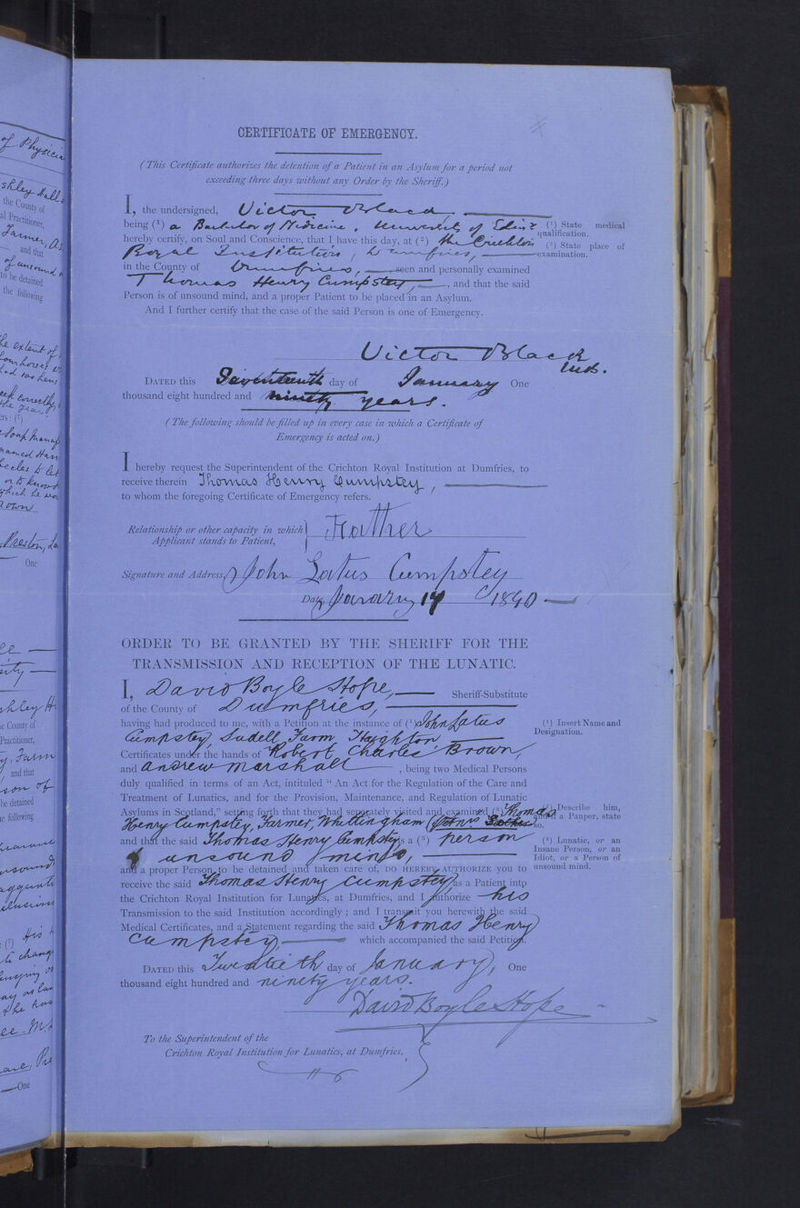 CERTIFICATE OF EMERGENCY.
(This Certificate authorizes the detention of a Patient in an Asylum for a period not
exceeding three days without any Order by the Sheriff.)
I, the undersigned, Victor Black
being (¹) a Bachelor of Medicine, University of Edinr (¹) State medical qualification.
hereby certify, on Soul and Conscience, that I have this day, at (²) the Crichton (²) State place of examination.
Royal Institution, Dumfries,
in the County of Dumfries, seen and personally examined
Thomas Henry Cumpstey, and that the said
Person is of unsound mind, and a proper Patient to be placed in an Asylum.
And I further certify that the case of the said Person is one of Emergency.
Victor Black
DATED this Seventeenth day of January One
thousand eight hundred and ninety years.
(The following should be filled up in every case in which a Certificate of
Emergency is acted on.)
I hereby request the Superintendent of the Crichton Royal Institution at Dumfries, to
receive therein Thomas Henry Cumpstey,
to whom the foregoing Certificate of Emergency refers.
Relationship or other capacity in which
Applicant stands to Patient, Father
Signature and Address, John Latus Cumpstey
Date, January 17 1890
ORDER TO BE GRANTED BY THE SHERIFF FOR THE
TRANSMISSION AND RECEPTION OF THE LUNATIC.
I, David Boyle Hope, Sheriff-Substitute
of the County of Dumfries,
having had produced to me, with a Petition at the instance of (¹) John Latus (¹) Insert Name and Designation.
Cumpstey, Farm
Certificates under the hands of Robert Charles Brown,
and Andrew Marshall, being two Medical Persons
duly qualified in terms of an Act, intituled "An Act for the Regulation of the Care and
Treatment of Lunatics, and for the Provision, Maintenance, and Regulation of Lunatic
Asylums in Scotland," setting forth that they had separately visited and examined (²) Thomas (²) Describe him, and if a Pauper, state so.
Henry Cumpstey, Farmer, Whittingham
and that the said Thomas Henry Cumpstey is a (³) person (³) Lunatic, or an Insane Person, or an Idiot, or a Person of unsound mind.
of unsound mind,
and a proper Person to be detained and taken care of, DO HEREBY AUTHORIZE you to
receive the said Thomas Henry Cumpstey as a Patient into
the Crichton Royal Institution for Lunatics, at Dumfries, and I authorize his
Transmission to the said Institution accordingly; and I transmit you herewith the said
Medical Certificates, and a Statement regarding the said Thomas Henry
Cumpstey which accompanied the said Petition.
DATED this Twentieth day of January, One
thousand eight hundred and ninety years.
David Boyle Hope
To the Superintendent of the
Crichton Royal Institution for Lunatics, at Dumfries.